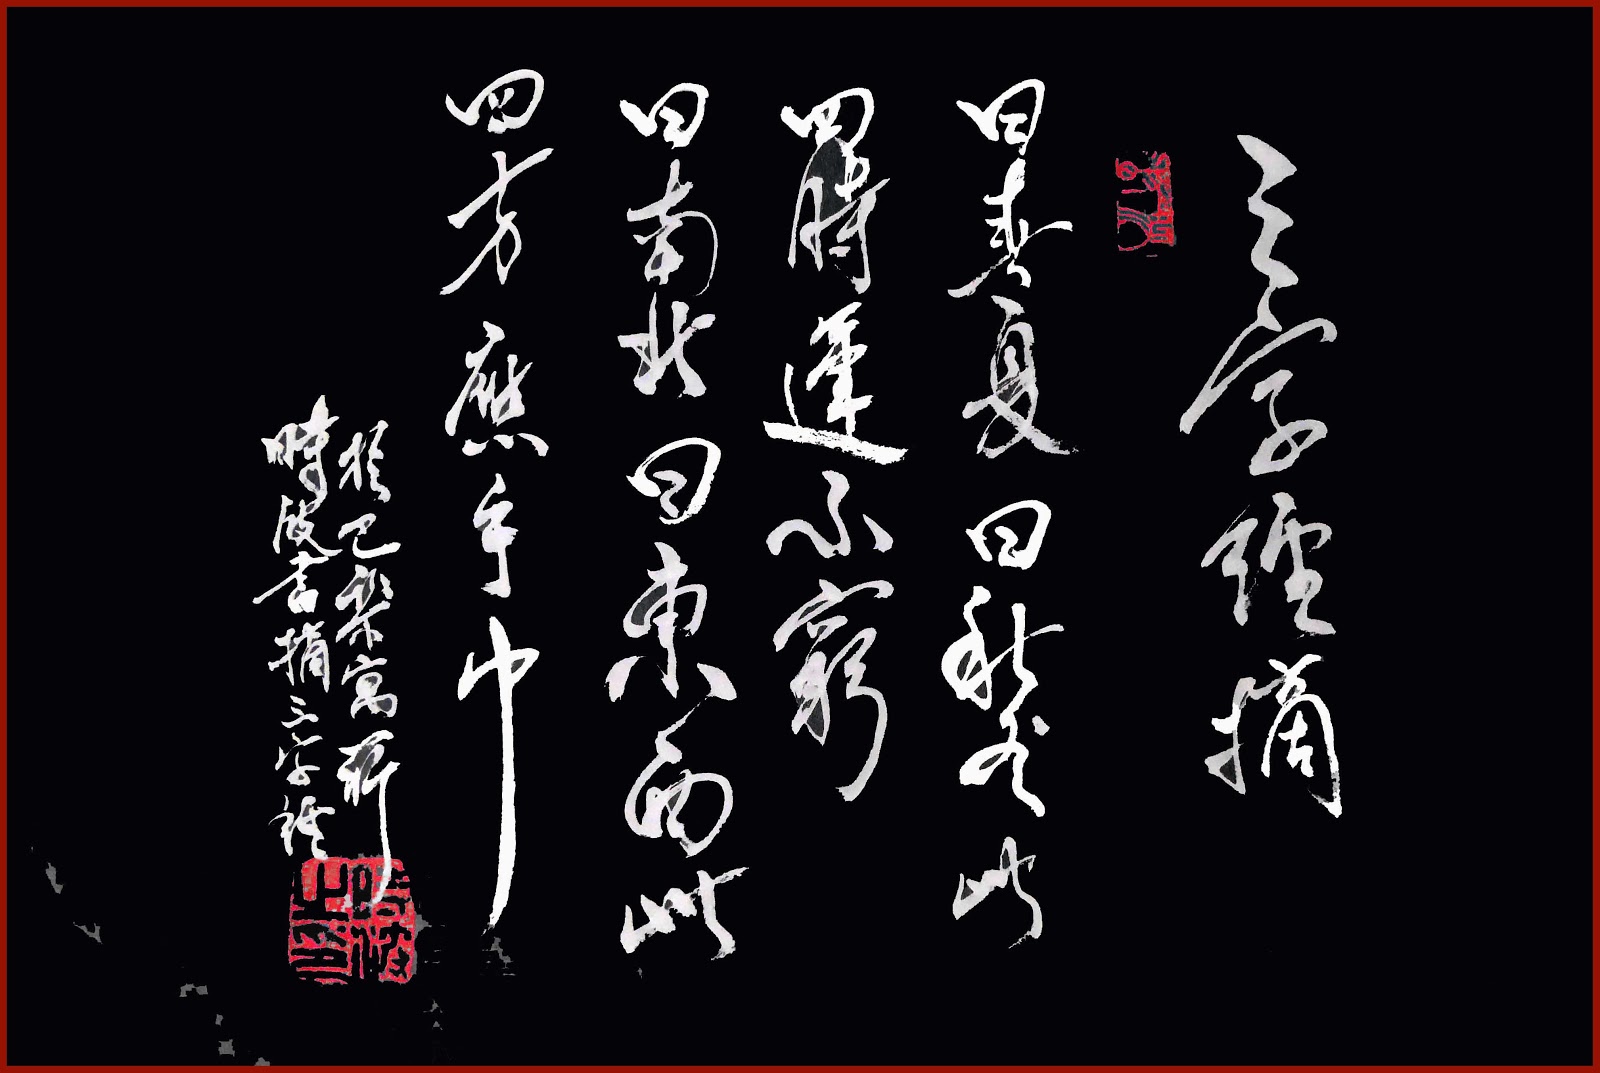 三字經摘
曰春夏曰秋冬此
四時運不窮
曰南北曰東西此
四方應乎中
於巴黎寓所
時俊書摘三字經